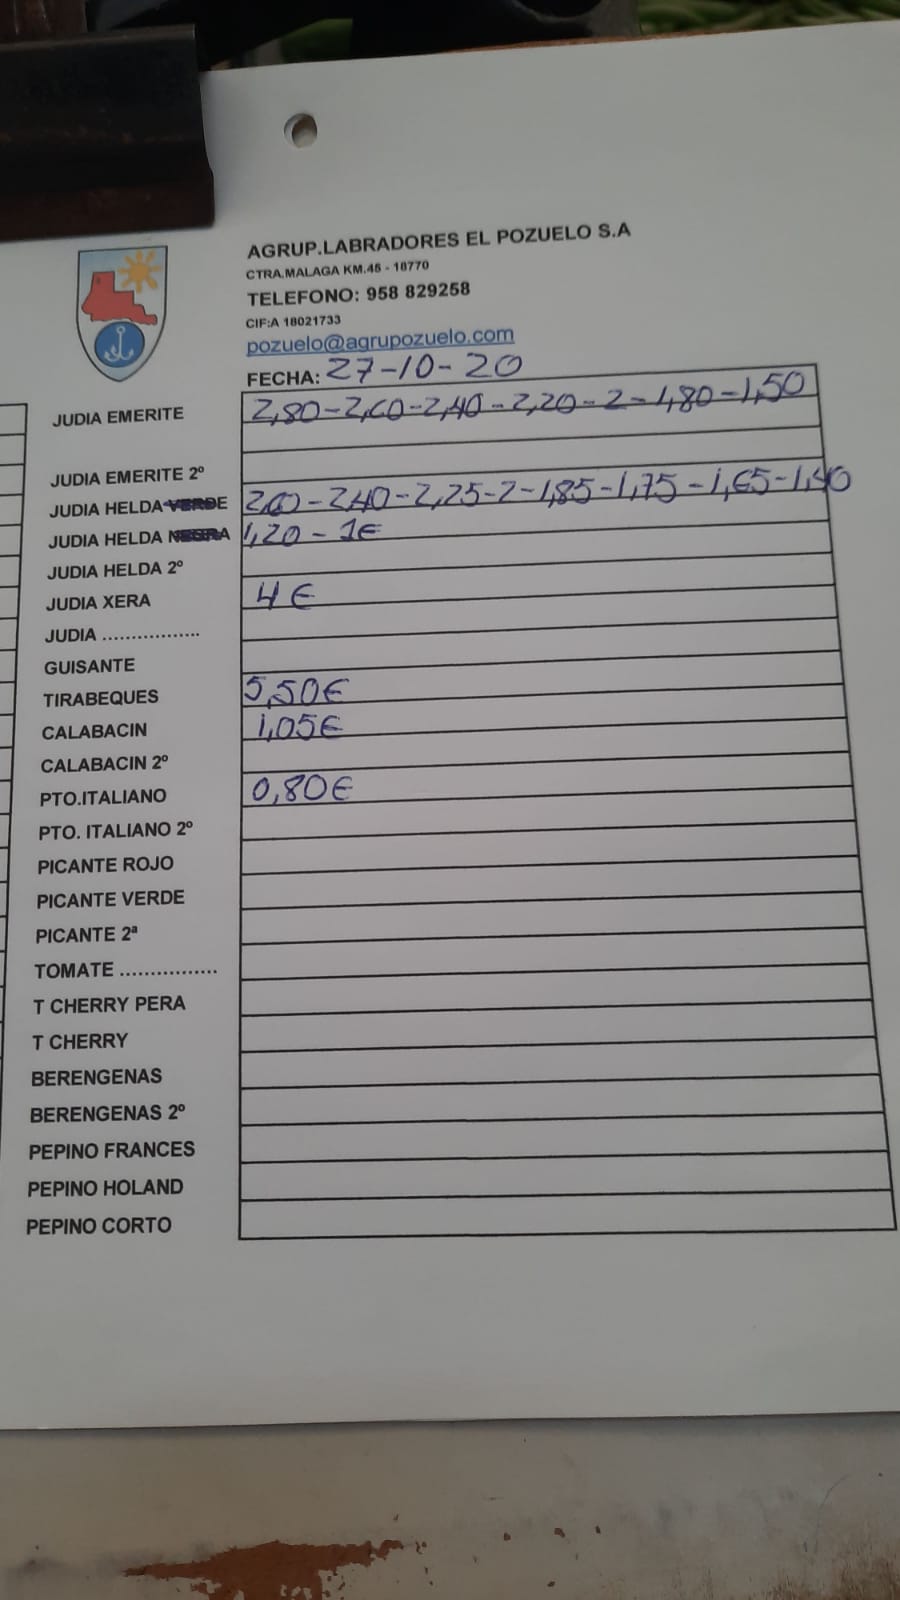 AGRUP.LABRADORES EL POZUELO S.A
CTRA.MALAGA KM.45 - 18770
TELEFONO: 958 829258
CIF:A 18021733
pozuelo@agrupozuelo.com
FECHA: 27-10-20
JUDIA EMERITE 2,80-2,60-2,40-2,20-2-1,80-1,50
JUDIA EMERITE 2º
JUDIA HELDA VERDE 2,60-2,40-2,25-2-1,85-1,75-1,65-1,40
JUDIA HELDA NEGRA 1,20-1€
JUDIA HELDA 2º
JUDIA XERA 4€
JUDIA .................
GUISANTE
TIRABEQUES 5,50€
CALABACIN 1,05€
CALABACIN 2º
PTO.ITALIANO 0,80€
PTO. ITALIANO 2º
PICANTE ROJO
PICANTE VERDE
PICANTE 2ª
TOMATE ................
T CHERRY PERA
T CHERRY
BERENGENAS
BERENGENAS 2º
PEPINO FRANCES
PEPINO HOLAND
PEPINO CORTO